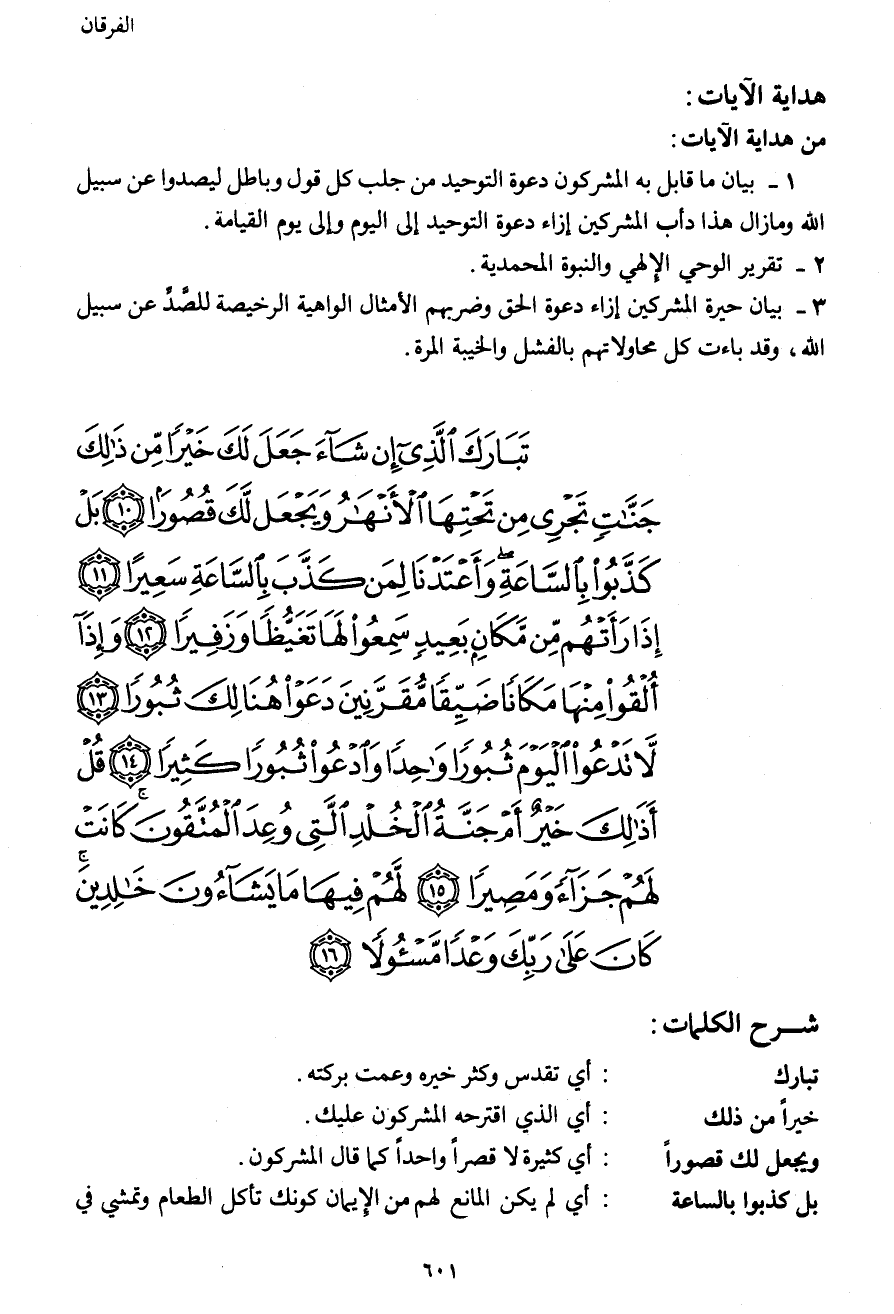 الفرقان
هداية الآيات :
من هداية الآيات :
١ - بيان ما قابل به المشركون دعوة التوحيد من جلب كل قول وباطل ليصدوا عن سبيل
الله ومازال هذا دأب المشركين إزاء دعوة التوحيد إلى اليوم وإلى يوم القيامة .
٢ - تقرير الوحي الإلهي والنبوة المحمدية .
٣ - بيان حيرة المشركين إزاء دعوة الحق وضربهم الأمثال الواهية الرخيصة للصَّدِّ عن سبيل
الله ، وقد باءت كل محاولاتهم بالفشل والخيبة المرة .
تَبَارَكَ ٱلَّذِىٓ إِن شَآءَ جَعَلَ لَكَ خَيْرًا مِّن ذَٰلِكَ
جَنَّٰتٍ تَجْرِى مِن تَحْتِهَا ٱلْأَنْهَٰرُ وَيَجْعَل لَّكَ قُصُورًۢا ١٠ بَلْ
كَذَّبُوا۟ بِٱلسَّاعَةِ ۖ وَأَعْتَدْنَا لِمَن كَذَّبَ بِٱلسَّاعَةِ سَعِيرًا ١١
إِذَا رَأَتْهُم مِّن مَّكَانٍۭ بَعِيدٍ سَمِعُوا۟ لَهَا تَغَيُّظًا وَزَفِيرًا ١٢ وَإِذَآ
أُلْقُوا۟ مِنْهَا مَكَانًا ضَيِّقًا مُّقَرَّنِينَ دَعَوْا۟ هُنَالِكَ ثُبُورًا ١٣
لَّا تَدْعُوا۟ ٱلْيَوْمَ ثُبُورًا وَٰحِدًا وَٱدْعُوا۟ ثُبُورًا كَثِيرًا ١٤ قُلْ
أَذَٰلِكَ خَيْرٌ أَمْ جَنَّةُ ٱلْخُلْدِ ٱلَّتِى وُعِدَ ٱلْمُتَّقُونَ ۚ كَانَتْ
لَهُمْ جَزَآءً وَمَصِيرًا ١٥ لَّهُمْ فِيهَا مَا يَشَآءُونَ خَٰلِدِينَ ۚ
كَانَ عَلَىٰ رَبِّكَ وَعْدًا مَّسْـُٔولًا ١٦
شـــرح الكلمات :
تبارك : أي تقدس وكثر خيره وعمت بركته .
خيراً من ذلك : أي الذي اقترحه المشركون عليك .
ويجعل لك قصوراً : أي كثيرة لا قصراً واحداً كما قال المشركون .
بل كذبوا بالساعة : أي لم يكن المانع لهم من الإيمان كونك تأكل الطعام وتمشي في
٦٠١